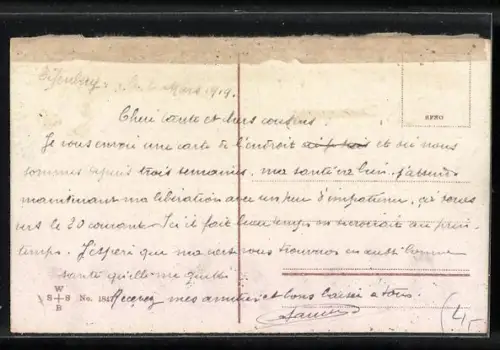 Mars 1919.
Cheri tante et chers cousins
Je vous envoi une carte de l'endroit où nous
sommes depuis trois semaines, ma santé va bien. J'attend
maintenant ma libération avec un peu d'impatience,
vers le 20 courant. Ici il fait beau temps on se croirait au prin-
temps. J'espère que ma carte vous trouvera en aussi bonne
santé qu'elle me quitte.
Recevez mes amitiés et bons baisers à tous.
SPHO
W
S+S
B
No. 184
4,-